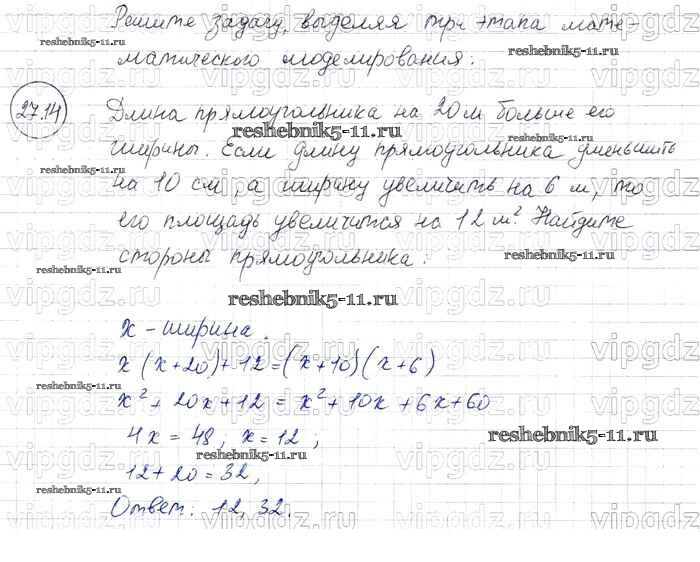 Решите задачу, выделяя три этапа мате-
матического моделирования.
27.14
Длина прямоугольника на 20 м больше его
ширины. Если длину прямоугольника уменьшить
на 10 см, а ширину увеличить на 6 м, то
его площадь увеличится на 12 м². Найдите
стороны прямоугольника.
x - ширина.
x(x+20)+12=(x+10)(x+6)
x²+20x+12=x²+10x+6x+60
4x=48, x=12;
12+20=32,
Ответ: 12, 32.
reshebnik5-11.ru
reshebnik5-11.ru
reshebnik5-11.ru
reshebnik5-11.ru
reshebnik5-11.ru
reshebnik5-11.ru
reshebnik5-11.ru
reshebnik5-11.ru
reshebnik5-11.ru
reshebnik5-11.ru
vipgdz.ru